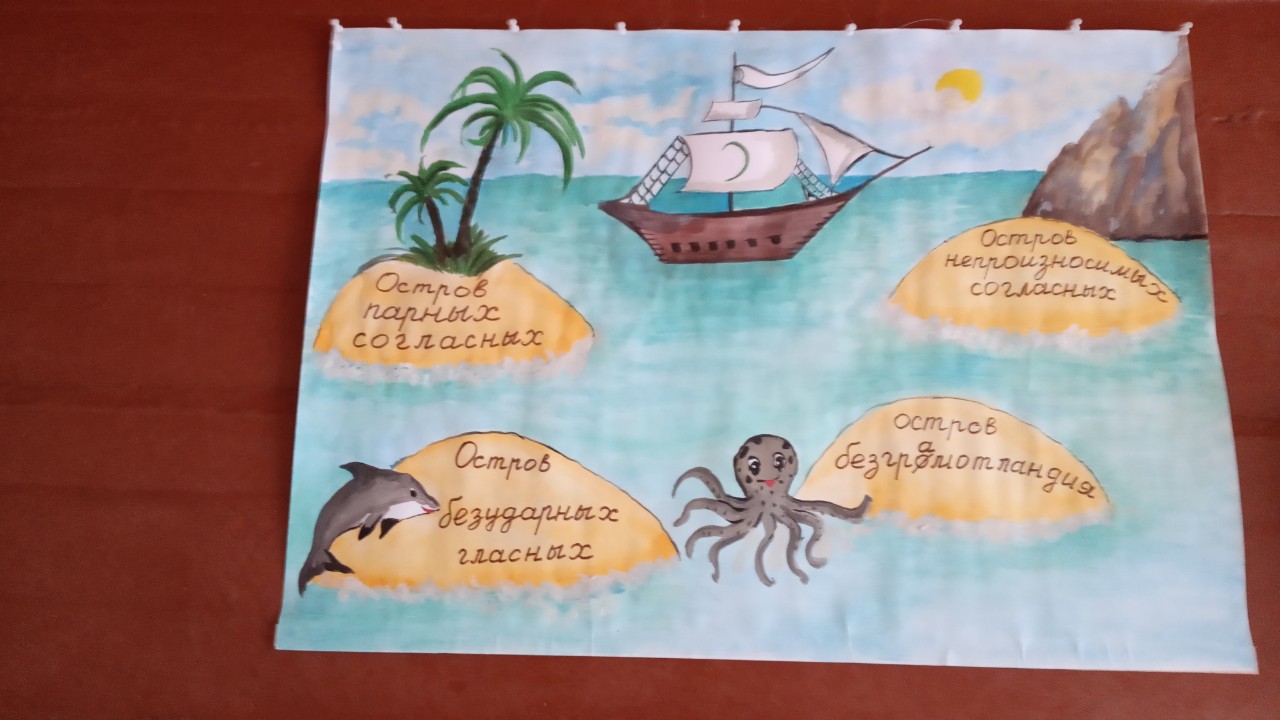 Остров
парных
согласных
Остров
непроизносимых
согласных
Остров
безударных
гласных
остров
безграмотландия